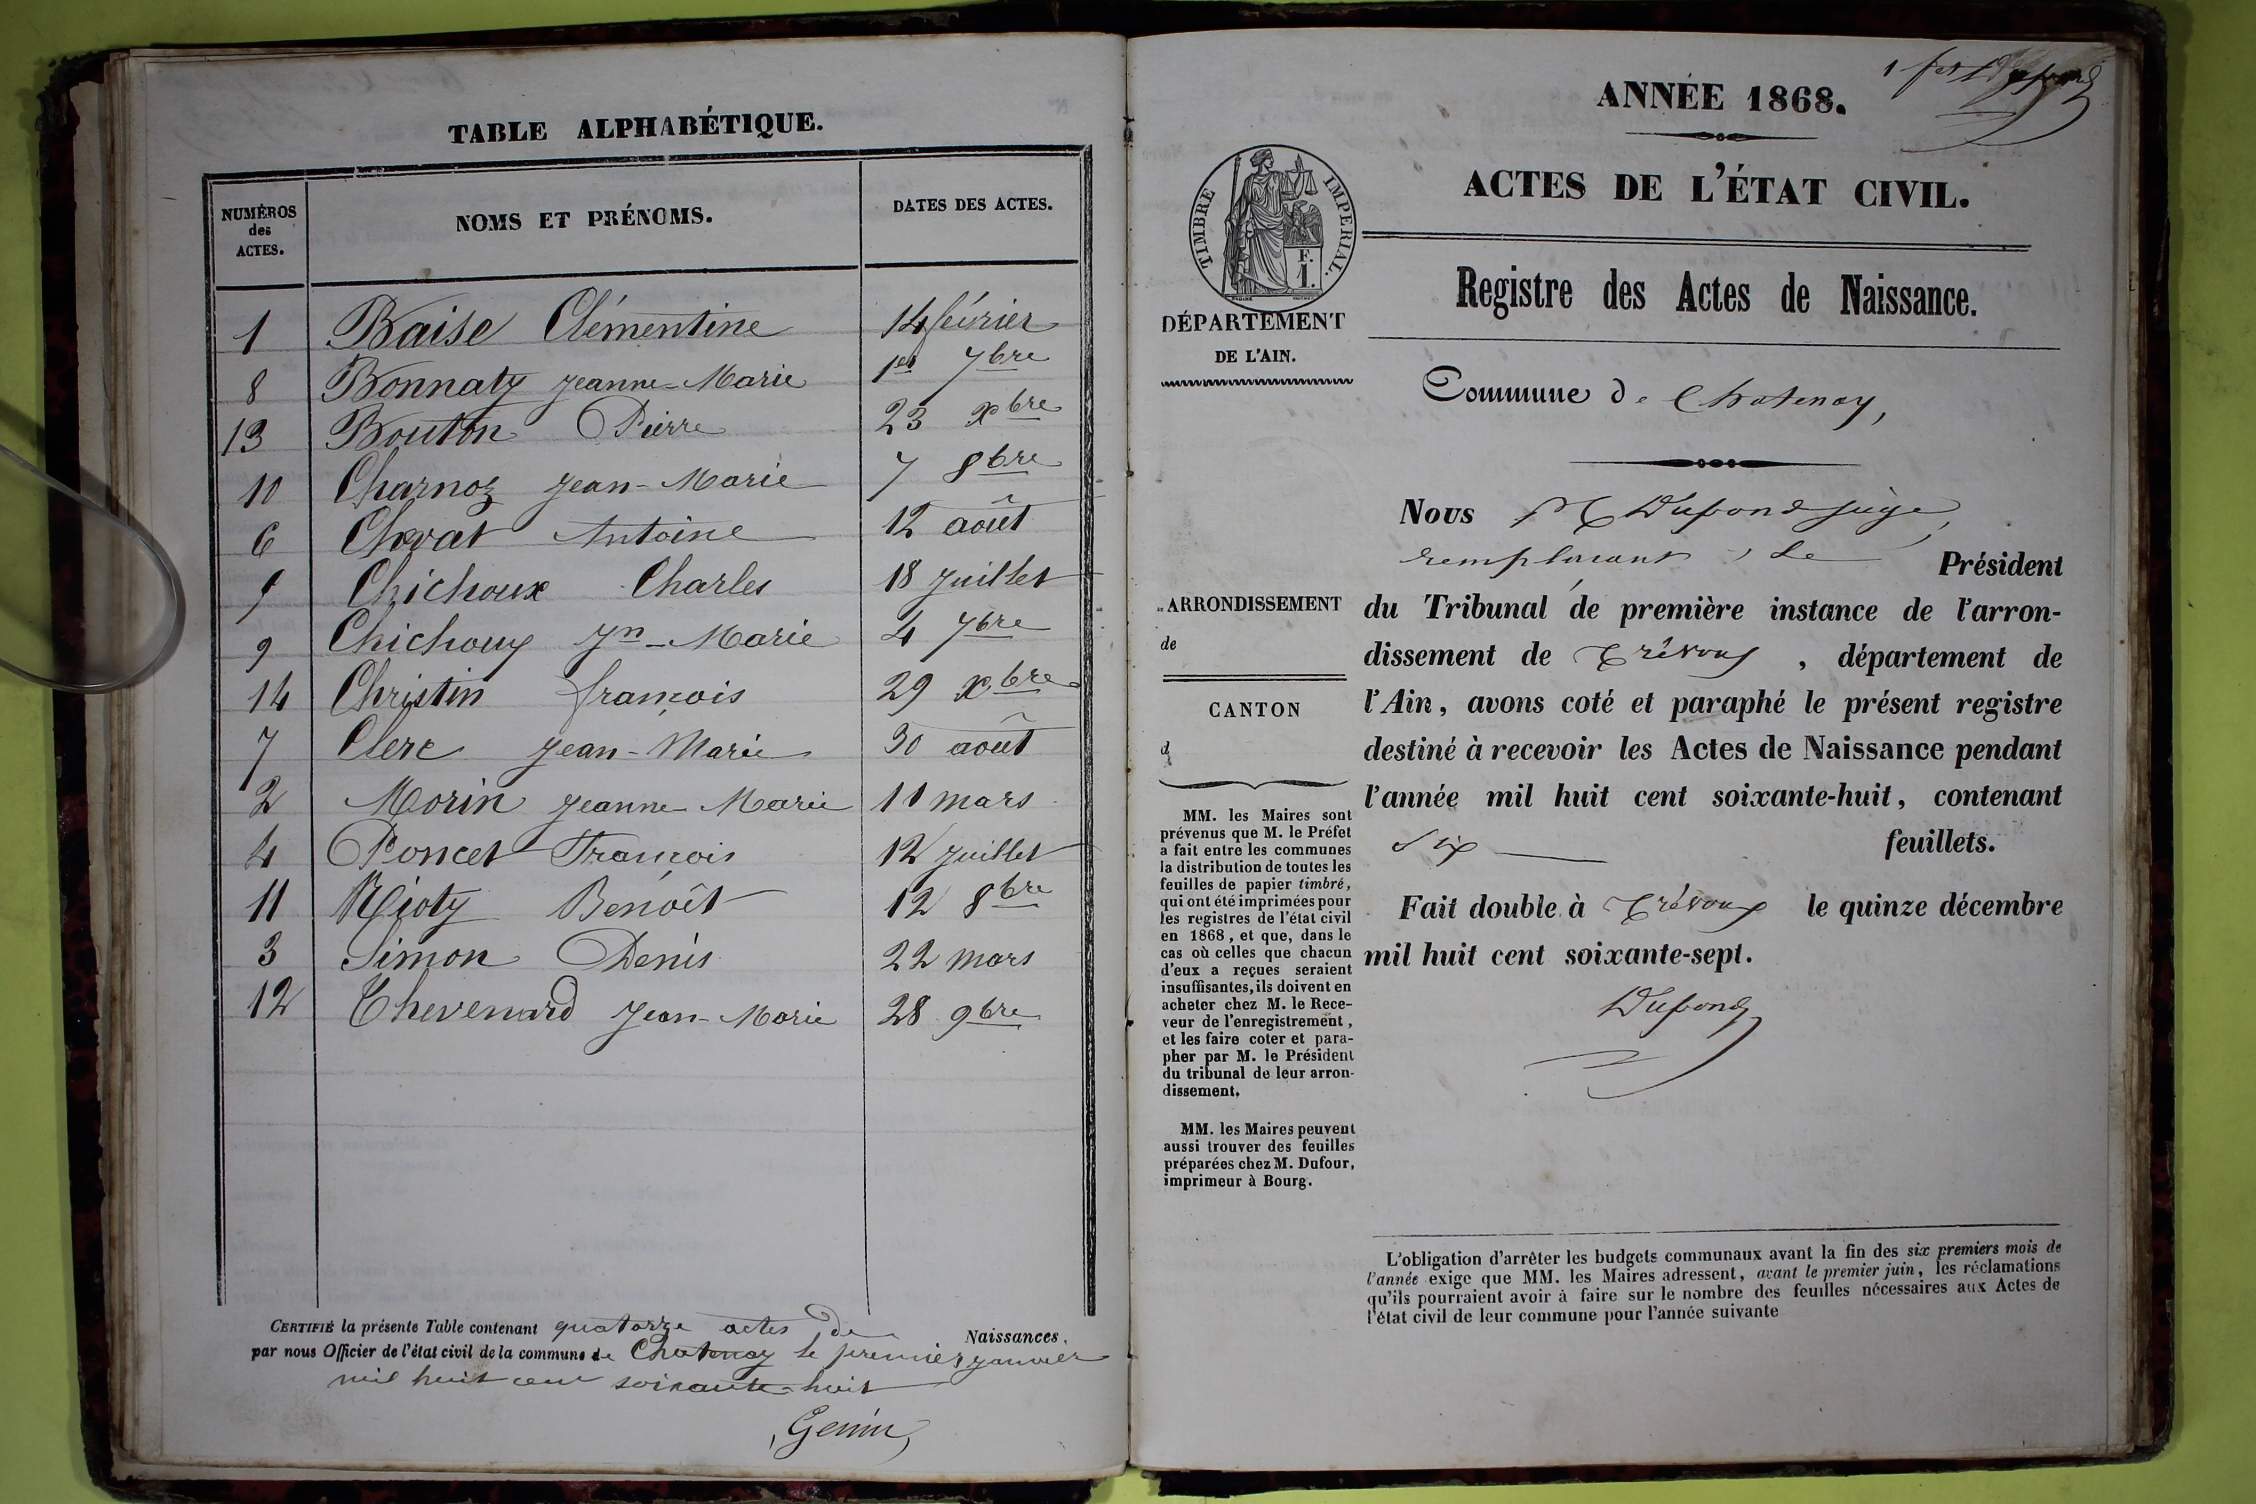 TABLE ALPHABÉTIQUE.
NUMÉROS des ACTES. NOMS ET PRÉNOMS. DATES DES ACTES.
1 Baise Clémentine 14 février
8 Bonnaty Jeanne-Marie 1er 7bre
13 Bouton Pierre 23 Xbre
10 Charnoz Jean-Marie 7 8bre
6 Chevat Antoine 12 août
5 Chichoux Charles 18 juillet
9 Chichoux Jn-Marie 4 7bre
14 Christin françois 29 Xbre
7 Clerc Jean-Marie 30 août
2 Morin Jeanne Marie 11 mars
4 Poncet François 12 juillet
11 Rioty Benoît 12 8bre
3 Simon Denis 22 mars
12 Thevenard Jean-Marie 28 9bre
CERTIFIÉ la présente Table contenant quatorze actes de Naissances,
par nous Officier de l'état civil de la commune de Chatenay le premier janvier
mil huit cent soixante-huit
Genin
1er Dupond
ANNÉE 1868.
ACTES DE L'ÉTAT CIVIL.
TIMBRE IMPERIAL.
F.
1.
DÉPARTEMENT
DE L'AIN.
Registre des Actes de Naissance.
Commune de Chatenay,
Nous Dupond juge,
remplacant le Président
du Tribunal de première instance de l'arron-
dissement de Trévoux, département de
l'Ain, avons coté et paraphé le présent registre
destiné à recevoir les Actes de Naissance pendant
l'année mil huit cent soixante-huit, contenant
six feuillets.
Fait double à Trévoux le quinze décembre
mil huit cent soixante-sept.
Dupond
ARRONDISSEMENT
de
CANTON
d
MM. les Maires sont
prévenus que M. le Préfet
a fait entre les communes
la distribution de toutes les
feuilles de papier timbré,
qui ont été imprimées pour
les registres de l'état civil
en 1868, et que, dans le
cas où celles que chacun
d'eux a reçues seraient
insuffisantes, ils doivent en
acheter chez M. le Rece-
veur de l'enregistrement,
et les faire coter et para-
pher par M. le Président
du tribunal de leur arron-
dissement.
MM. les Maires peuvent
aussi trouver des feuilles
préparées chez M. Dufour,
imprimeur à Bourg.
L'obligation d'arrêter les budgets communaux avant la fin des six premiers mois de
l'année exige que MM. les Maires adressent, avant le premier juin, les réclamations
qu'ils pourraient avoir à faire sur le nombre des feuilles nécessaires aux Actes de
l'état civil de leur commune pour l'année suivante